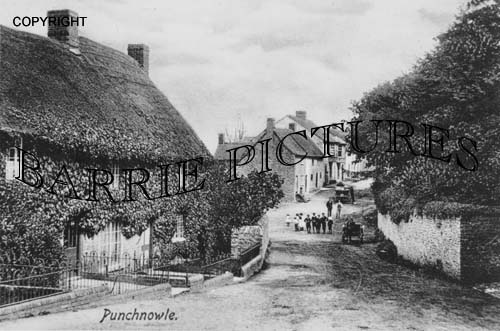 COPYRIGHT
BARRIE PICTURES
Punchnowle.